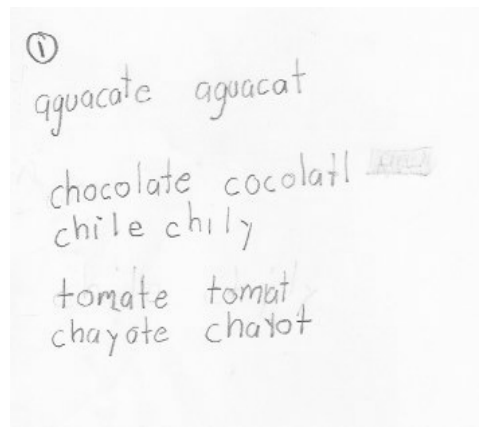 ①
aguacate aguacat
chocolate cocolatl
chile chily
tomate tomat
chayote chayot